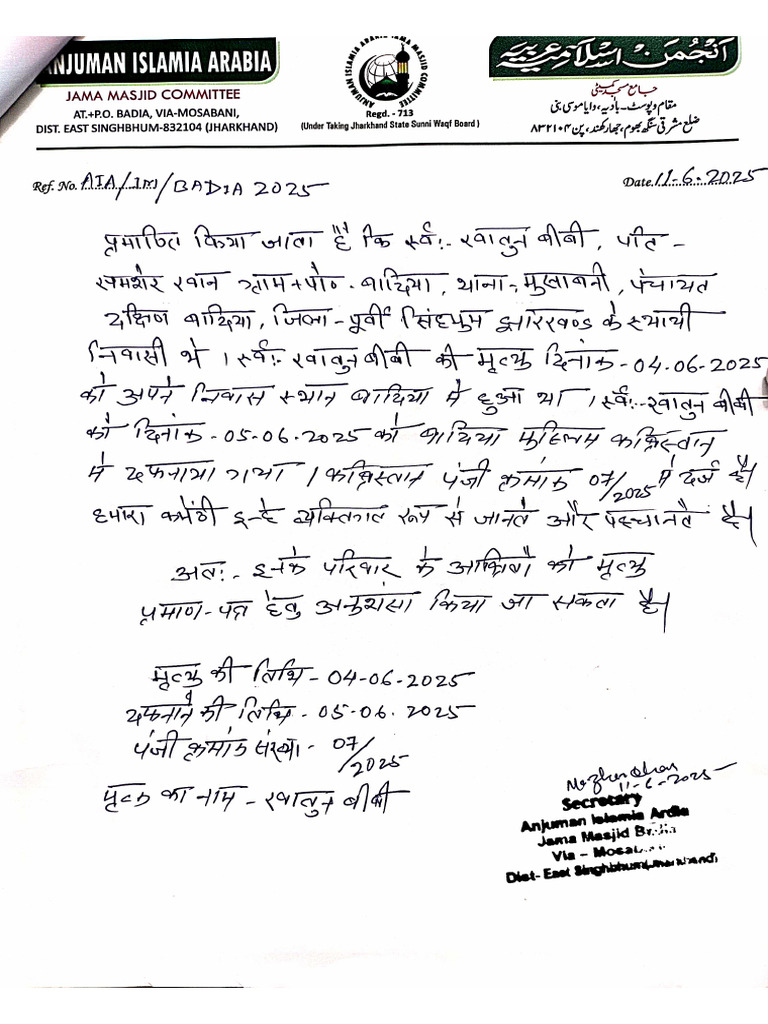 ANJUMAN ISLAMIA ARABIA
JAMA MASJID COMMITTEE
AT.+P.O. BADIA, VIA-MOSABANI,
DIST. EAST SINGHBHUM-832104 (JHARKHAND)
ANJUMAN ISLAMIA ARABIA JAMA MASJID COMMITTEE
Regd. - 713
(Under Taking Jharkhand State Sunni Waqf Board)
انجمن اسلامیہ عربیہ
جامع مسجد کمیٹی
مقام و پوسٹ - بادیہ، وایا موسی بنی
ضلع مشرقی سنگھ بھوم، جھارکھنڈ، پن ۸۳۲۱۰۴
Ref. No. AIA/JM/BADIA 2025
Date. 11-6-2025
प्रमाणित किया जाता है कि स्वः- खातुन बीबी, पति -
समशेर खान ग्राम + पो० - बादिया, थाना - मुसाबनी, पंचायत
दक्षिण बादिया, जिला - पूर्वी सिंहभुम झारखण्ड के स्थायी
निवासी थे। स्वः- खातुन बीबी की मृत्यु दिनांक - 04.06.2025
को अपने निवास स्थान बादिया मे हुआ था। स्वः- खातुन बीबी
को दिनांक - 05-06.2025 को बादिया मुस्लिम कब्रिस्तान
मे दफनाया गया। कब्रिस्तान पंजी क्रमांक 07/2025 मे दर्ज है।
हमारा कमेटी इन्हे व्यक्तिगत रूप से जानते और पहचानते है।
अतः - इनके परिवार के आश्रितो को मृत्यु
प्रमाण-पत्र हेतु अनुशंसा किया जा सकता है।
मृत्यु की तिथि - 04-06-2025
दफनाने की तिथि - 05-06.2025
पंजी क्रमांक संख्या - 07/2025
मृतक का नाम - खातुन बीबी
11-6-2025
Secretary
Anjuman Islamia Ardia
Jama Masjid Badia
Via - Mosabani
Dist- East Singhbhum(Jharkhand)